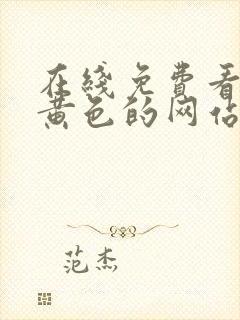 在线免费看
黄色的网站
范杰